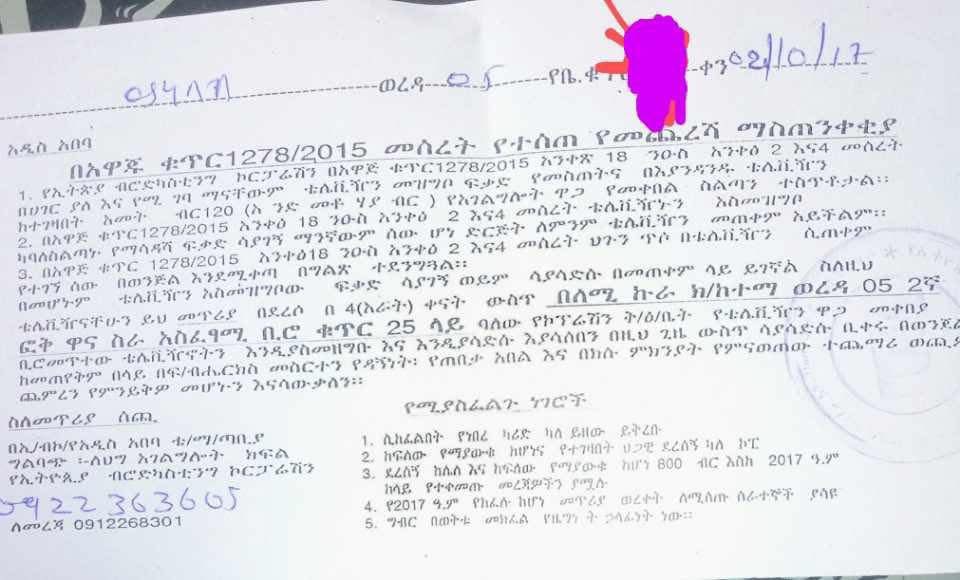 ወረዳ 05 የቤ.ቁ ቀን 02/10/17
አዲስ አበባ
በአዋጁ ቁጥር1278/2015 መሰረት የተሰጠ የመጨረሻ ማስጠንቀቂያ
1. የኢትጵያ ብሮድካስቲንግ ኮርፖሬሽን በአዋጅ ቁጥር1278/2015 አንቀጽ 18 ንዑስ አንቀፅ 2 እና4 መሰረት
በሀገር ያለ እና የሚ ገባ ማናቸውም ቴሌቪዥን መዝግቦ ፍቃድ የመስጠትና በእያንዳንዱ ቴሌቪዥን
ከተገዛበት አመት ብር120 (አ ንድ መቶ ሃያ ብር ) የአገልግሎት ዋጋ የመቀበል ስልጣን ተሰጥቶታል፡፡
2. በአዋጅ ቁጥር1278/2015 አንቀፅ 18 ንዑስ አንቀፅ 2 እና4 መሰረት ቴሌቪዥኑን አስመዝግቦ
ካባለስልጣኑ የማሳደሻ ፍቃድ ሳያገኝ ማንኛውም ሰው ሆነ ድርጅት ለምንም ቴሌቪዥን መጠቀም አይችልም፡፡
3. በአዋጅ ቁጥር 1278/2015 አንቀፅ18 ንዑስ አንቀፅ 2 እና4 መሰረት ህጉን ጥሶ በቴሌቪዥን ሲጠቀም
የተገኘ ሰው በወንጀል እንደሚቀጣ በግልጽ ተደንግጓል፡፡
በመሆኑም ቴሌቪዥን አስመዝግበው ፍቃድ ሳያገኝ ወይም ሳያሳድሱ በመጠቀም ላይ ይገኛል ስለዚህ
ቴሌቪዥናችሁን ይህ መጥሪያ በደረሶ በ 4(አራት) ቀናት ውስጥ በለሚ ኩራ ክ/ከተማ ወረዳ 05 2ኛ
ፎቅ ዋና ስራ አስፈፃሚ ቢሮ ቁጥር 25 ላይ ባለው የኮፕሬሽን ት/ዕ/ቤት የቴሌቪዥን ዋጋ መቀበያ
ቢሮመጥተው ቴሌቪዥኖትን እንዲያስመዘግቡ እና እንዲያሳድሱ እያሳሰበን በዚህ ጊዜ ውስጥ ሳያሳድሱ ቢቀሩ በወንጀል
ከመጠየቅም በላይ በፍ/ብሔርክስ መስርተን የዳኝነት፡ የጠበታ አበል እና በክሱ ምክንያት የምናወጠው ተጨማሪ ወጪ
ጨምረን የምንይቅዎ መሆኑን እናሳውቃለን፡፡
ስለመጥሪያ ሰጪ
በኢ/ብኮ/የአዲስ አበባ ቴ/ማ/ጣቢያ
ግልባጭ ፡-ለህግ አገልግሎት ክፍል
የኢትዮጲያ ብሮድካስቲንግ ኮርፓሬሽን
0922363605
ለመረጃ 0912268301
የሚያስፈልጉ ነገሮች
1. ሲከፈልበት የነበረ ካሪድ ካለ ይዘው ይቅረቡ
2. ከፍለው የማያውቁ ከሆነና የተገዛበት ህጋዊ ደረሰኝ ካለ ኮፒ
3. ደረሰኝ ከሌለ እና ከፍለው የማያውቁ ከሆነ 800 ብር እስከ 2017 ዓ.ም
ከላይ የተቀመጡ መረጃዎችን ያሟሉ
4. የ2017 ዓ.ም የከፈሉ ከሆነ መጥሪያ ወረቀት ለሚሰጡ ሰራተኞች ያሳዩ
5. ግብር በወቅቱ መክፈል የዜግነ ት ኃላፊነት ነው፡፡